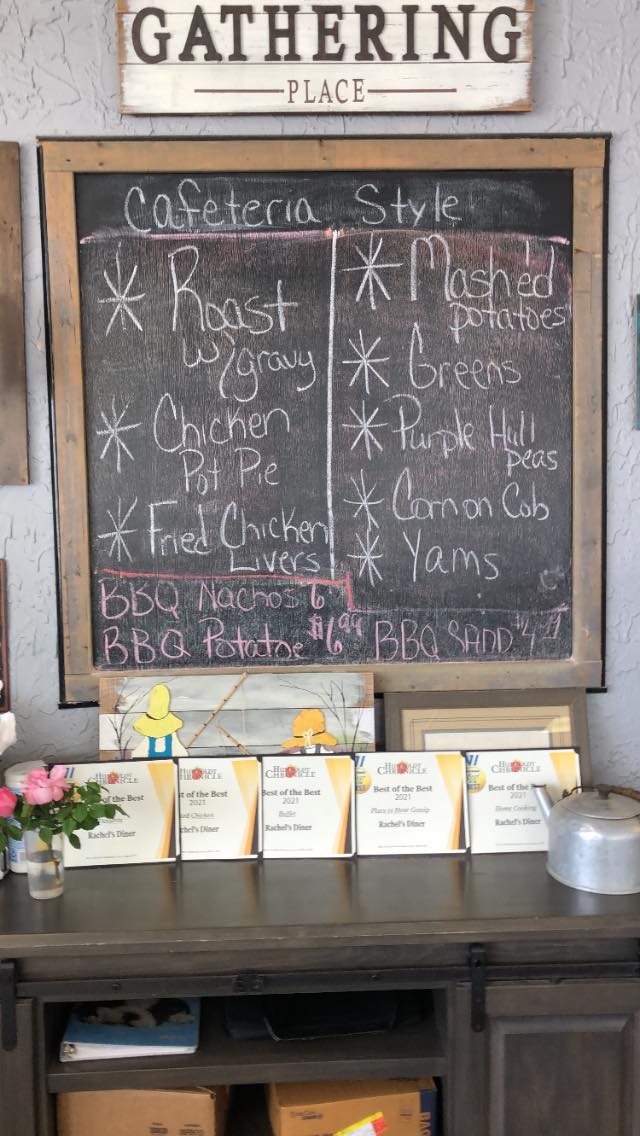 GATHERING
PLACE
Cafeteria Style
Roast
w/gravy
Chicken
Pot Pie
Fried Chicken
Livers
Mash'ed
potatoes
Greens
Purple Hull
peas
Corn on Cob
Yams
BBQ Nachos 6
BBQ Potatoe $6.99
BBQ SAND $4
HUMBOLDT
CHRONICLE
Best of the Best
2021
Rachel's Diner
HUMBOLDT
CHRONICLE
Best of the Best
2021
Chicken
Rachel's Diner
HUMBOLDT
CHRONICLE
Best of the Best
2021
Buffet
Rachel's Diner
HUMBOLDT
CHRONICLE
Best of the Best
2021
Place to Hear Gossip
Rachel's Diner
HUMBOLDT
CHRONICLE
Best of the
2021
Home Cooking
Rachel's Diner